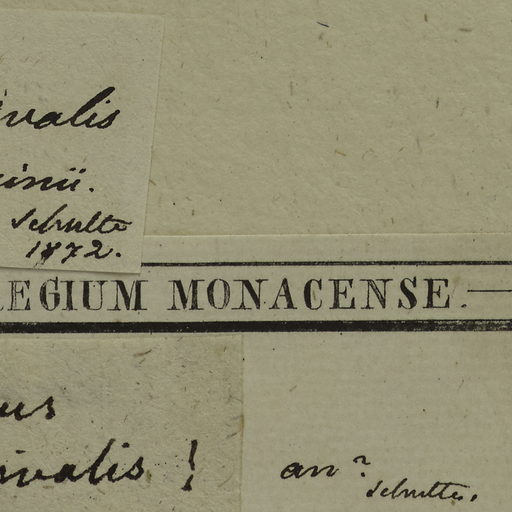 ivalis
inii.
Schulte
1872.
REGIUM MONACENSE.
us
ivalis !
an?
Schulte.